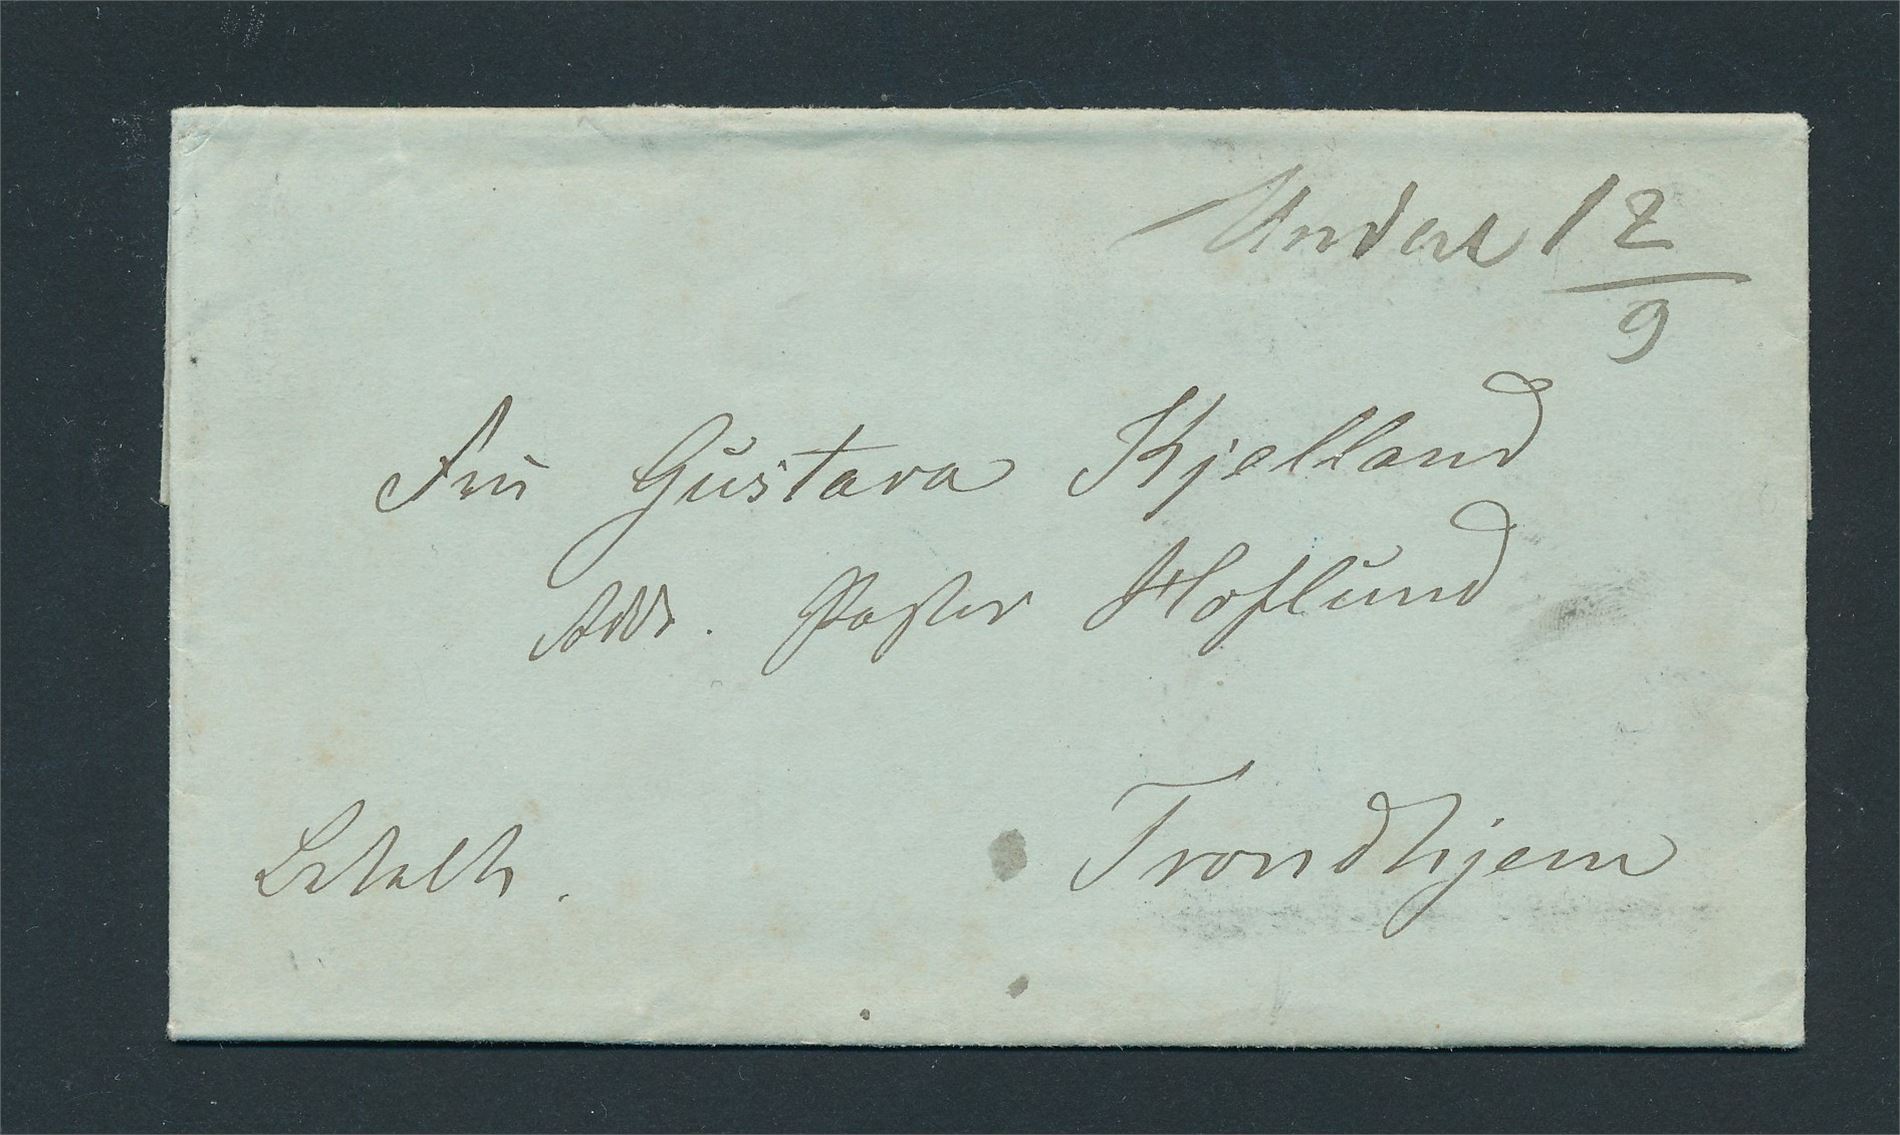 Under 12/9
Fru Gustava Kjelland
Addr. Pastor Hoflund
Trondhjem
Betalt.